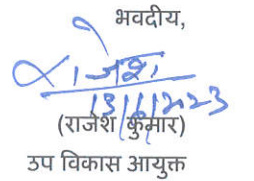 भवदीय,
राजेश
13/6/2023
(राजेश कुमार)
उप विकास आयुक्त